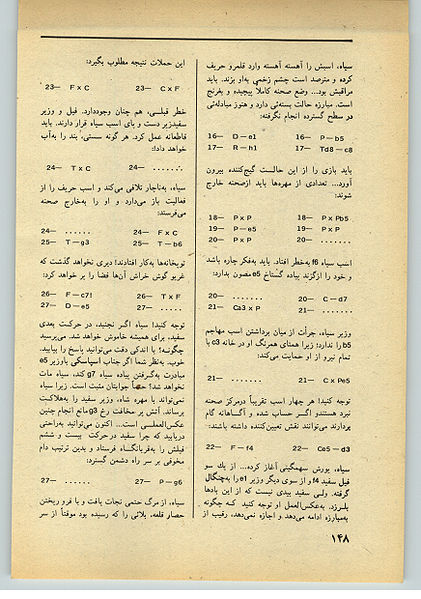 سیاه، اسبش را آهسته آهسته وارد قلمرو حریف
کرده و مترصد است چشم زخمی به‌او بزند. باید
مراقبش بود... وضع صحنه کاملا پیچیده و بغرنج
است. مبارزه حالت بسته‌ئی دارد و هنوز مبادله‌ئی
در سطح گسترده انجام نگرفته:
16— D — e1 16— P — b5
17— R — h1 17— Td8 — c8
باید بازی را از این حالت گیج‌کننده بیرون
آورد... تعدادی از مهره‌ها باید ازصحنه خارج
شوند:
18— P x P 18— P x Pb5
19— P — e5 19— P x P
20— P x P 20— .......
اسب سیاه f6 به‌خطر افتاد. باید به‌فکر چاره باشد
و خود را ازگزند پیاده گستاخ e5 مصون بدارد:
20— ....... 20— C — d7
21— Ca3 x P 21— .......
وزیر سیاه، جرأت از میان برداشتن اسب مهاجم
b5 را ندارد؛ زیرا همتای همرنگ او در خانه c3 با
تمام نیرو از او حمایت می‌کند:
21— ....... 21— C x Pe5
توجه کنید! هر چهار اسب تقریباً درمرکز صحنه
نبرد هستندو اگر حساب شده و آگاهانه گام
بردارند می‌توانند نقش تعیین‌کننده داشته باشند:
22— F — f4 22— Ce5 — d3
سیاه، یورش سهمگینی آغاز کرده... از یك سو
فیل سفید f4 و از سوی دیگر وزیر e1 را به‌چنگال
گرفته. ولی سفید بیدی نیست که از این بادها
بلرزد. به‌عکس‌العمل او توجه کنید که چگونه
به‌مبارزه ادامه می‌دهد و اجازه نمی‌دهد، رقیب از
این حملات نتیجه مطلوب بگیرد:
23— F x C 23— C x F
خطر قبلی، هم چنان وجوددارد. فیل و وزیر
سفیدزیر دست و پای اسب سیاه قرار دارند. باید
قاطعانه عمل کرد. هر گونه سستی، بند را به‌آب
خواهد داد:
24— T x C 24— .......
سیاه، به‌ناچار تلافی می‌کند و اسب حریف را از
فعالیت باز می‌دارد و او را به‌خارج صحنه
می‌فرستد:
24— ...... 24— F x C
25— T — g3 25— T — b6
توپخانه‌ها به‌کار افتادند! دیری نخواهد گذشت که
غریو گوش خراش آن‌ها فضا را پر خواهد کرد:
26— F — c7! 26— T x F
27— D — e5 27— .....
توجه کنید! سیاه اگر نجنبد، در حرکت بعدی
سفید، برای همیشه خاموش خواهد شد. می‌پرسید
چگونه؟ با اندکی دقت می‌توانید پاسخ را بیابید.
خوب، به‌نظر شما اگر جناب اسپاسکی باوزیر e5
مبادرت به‌گرفتن پیاده سیاه g7 کند، سیاه مات
نخواهد شد؟ حتماً جوابتان مثبت است. زیرا سیاه
نمی‌تواند با مهره شاه، وزیر سفید را به‌هلاکت
برساند، آتش پر مخافت رخ g3 مانع انجام چنین
عکس‌العملی است... اکنون می‌توانید به‌راحتی
دریابید که چرا سفید درحرکت بیست و ششم
فیلش را به‌قربانگاه فرستاد و بدین ترتیب دام
مخوفی بر سر راه دشمن گسترد:
27— ...... 27— P — g6
سیاه، از مرگ حتمی نجات یافت و با فرو ریختن
حصار قلعه، بلائی را که رسیده بود موقتاً از سر
۱۴۸